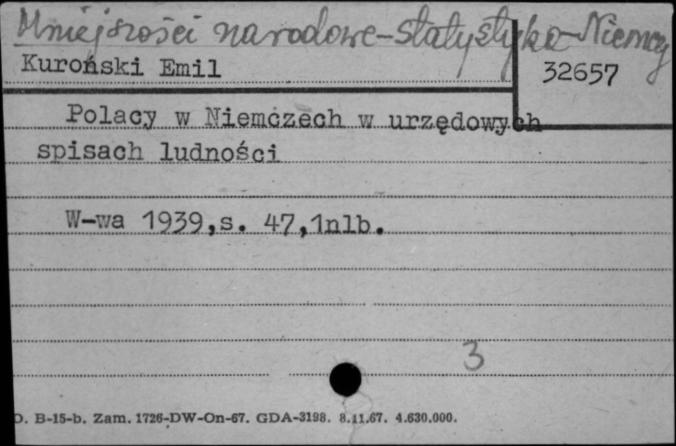 Mniejszości narodowe-statystyka-Niemcy
Kuroński Emil
32657
Polacy w Niemczech w urzędowych
spisach ludności
W-wa 1939,s. 47,1nlb.
3
D. B-15-b. Zam. 1726-DW-On-67. GDA-3198. 8.11.67. 4.630.000.